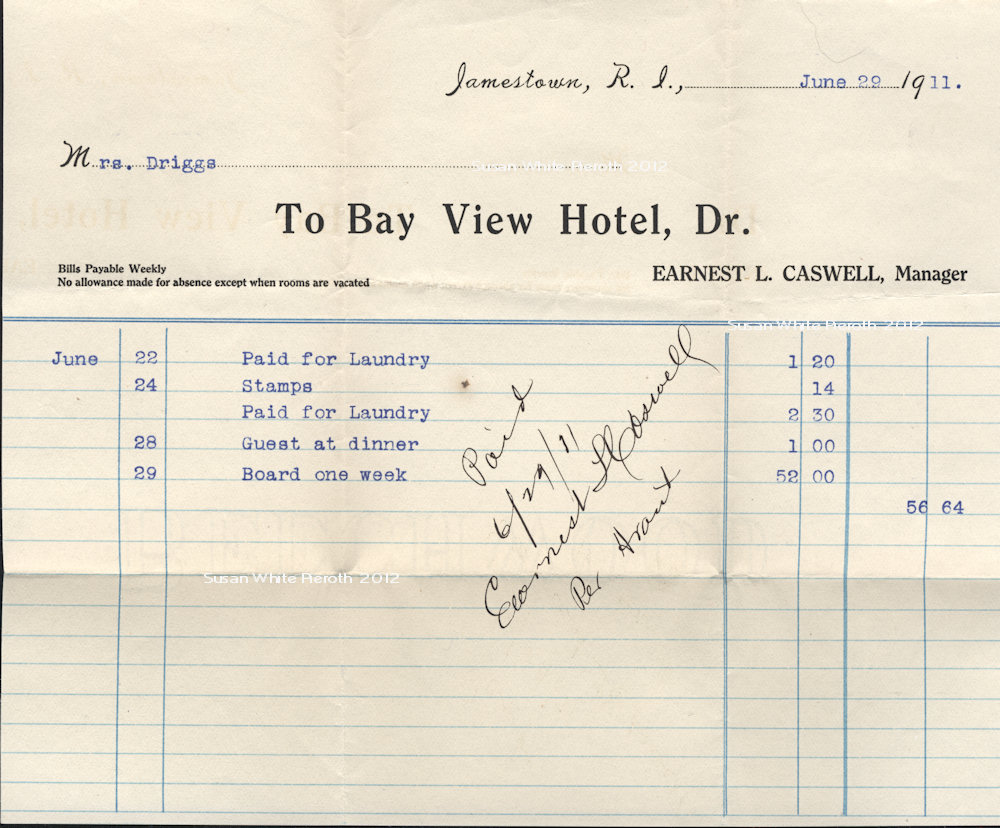 Jamestown, R. I., June 29 1911.
Mrs. Driggs
Susan White Reroth 2012
To Bay View Hotel, Dr.
Bills Payable Weekly
No allowance made for absence except when rooms are vacated
EARNEST L. CASWELL, Manager
Susan White Reroth 2012
June 22 Paid for Laundry 1 20
24 Stamps 14
Paid for Laundry 2 30
28 Guest at dinner 1 00
29 Board one week 52 00
56 64
Paid
6/29/11
Earnest L Caswell
Per
Susan White Reroth 2012